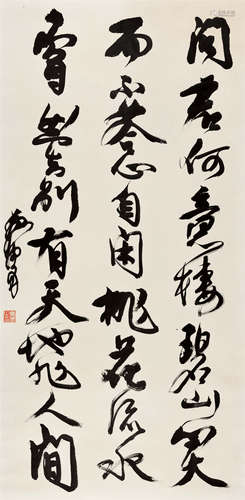 问君何意棲碧山笑
而不答心自闲桃花流水
窅然去别有天地非人间